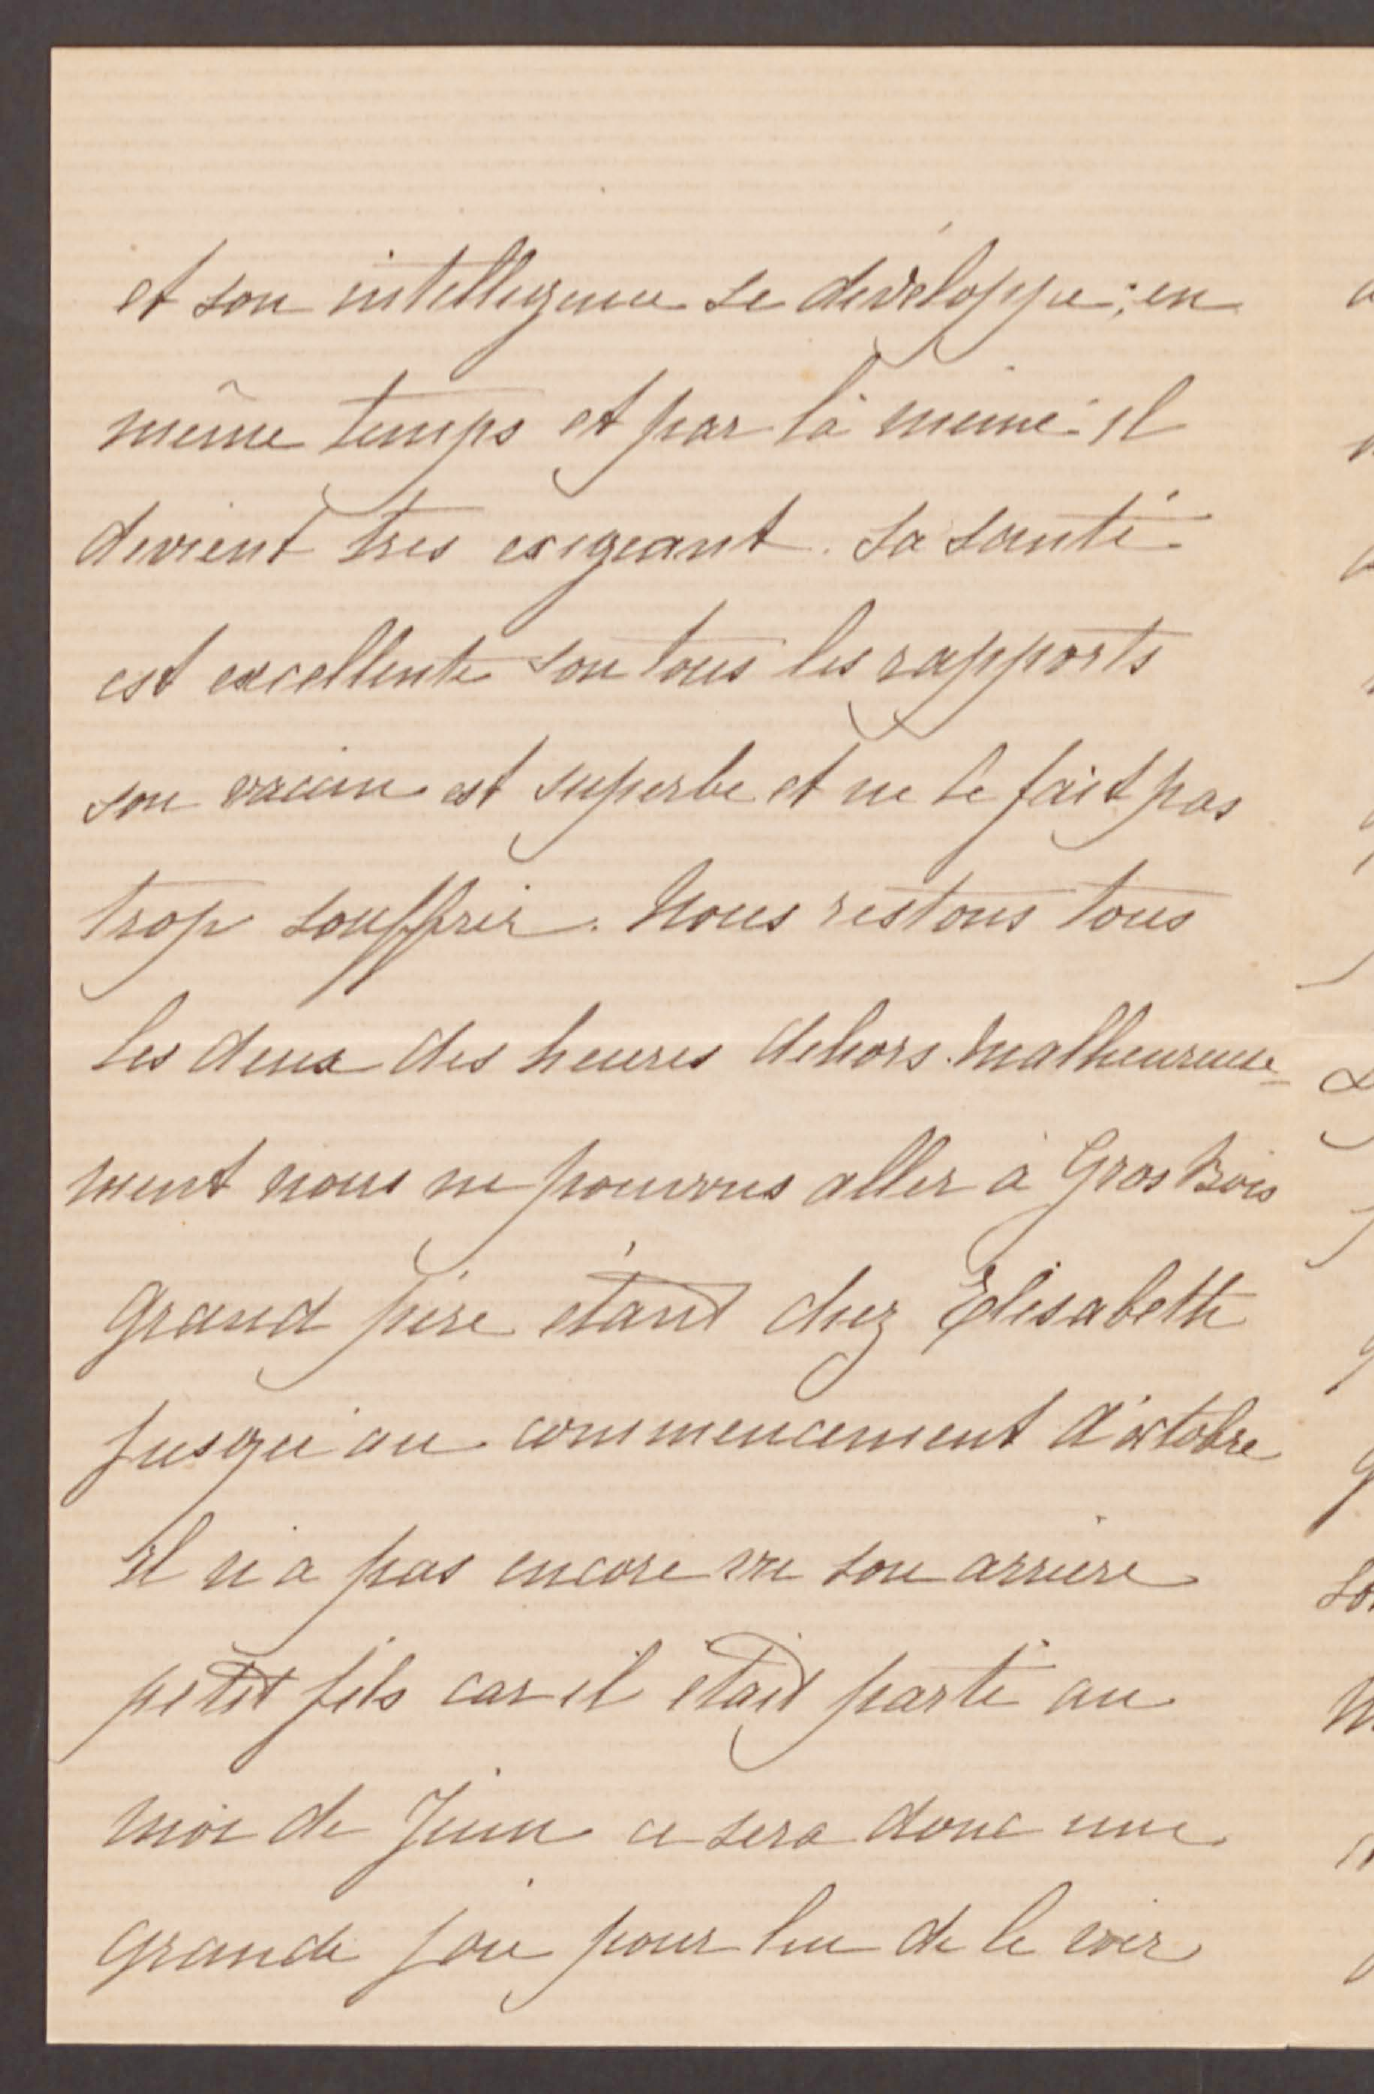 et son intelligence se développe; en
même temps et par là même il
devient très exigeant. Sa santé
est excellente sou tous les rapports
son vaccin est superbe et ne le fait pas
trop souffrir. Nous restons tous
les deux des heures dehors. Malheureuse-
ment nous ne pouvons aller à Gros Bois
grand père étant chez Elisabeth
jusqu'au commencement d'octobre
il n'a pas encore vu son arrière
petit fils car il était parti au
moi de Juin ce sera donc une
grande joie pour lui de le voir